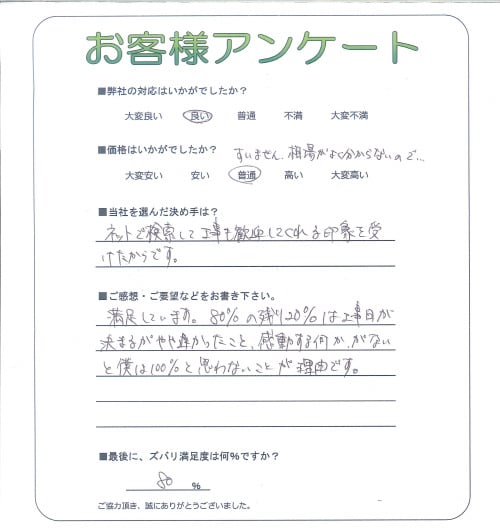 お客様アンケート
■弊社の対応はいかがでしたか?
大変良い 良い 普通 不満 大変不満
■価格はいかがでしたか? すいません、相場がよく分からないので…
大変安い 安い 普通 高い 大変高い
■当社を選んだ決め手は?
ネットで検索して工事も歓迎してくれる印象を受
けたからです。
■ご感想・ご要望などをお書き下さい。
満足しています。80%の残り20%は工事日が
決まるがやや遅かったこと、感動する何か、がない
と僕は100%と思わないことが理由です。
■最後に、ズバリ満足度は何%ですか?
80 %
ご協力頂き、誠にありがとうございました。